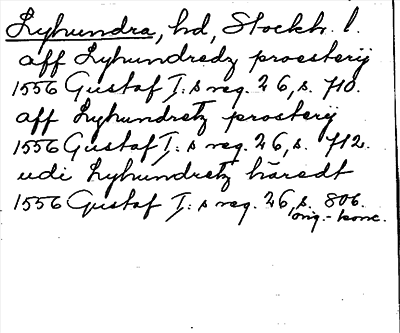 Lyhundra, hd, Stockh. l.
aff Lyhundredz proesterij
1556 Gustaf I:s reg. 26, s. 710.
aff Lyhundretz prosterij
1556 Gustaf I:s reg. 26, s. 712.
udi Lyhundretz häredt
1556 Gustaf I:s reg. 26, s. 806.
orig.-konc.